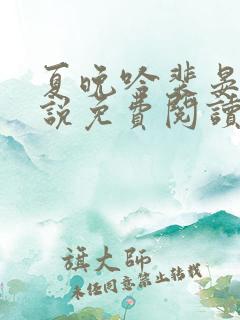 夏晚吟裴晏
說免費閱讀
旗大師
未經同意禁止轉載